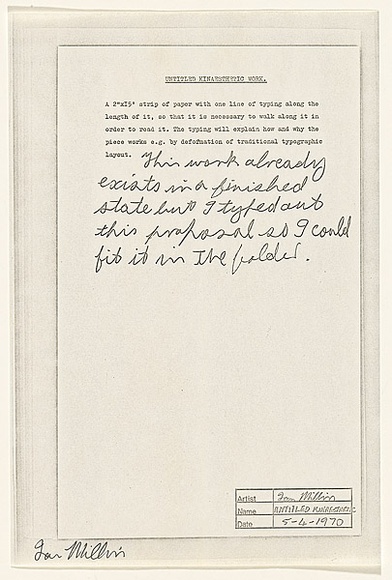 UNTITLED KINAESTHETIC WORK.
A 2"x15' strip of paper with one line of typing along the
length of it, so that it is necessary to walk along it in
order to read it. The typing will explain how and why the
piece works e.g. by defomation of traditional typographic
layout. This work already
exists in a finished
state but I typed out
this proposal so I could
fit it in the folder.
Artist Ian Millis
Name UNTITLED KINAESTHETIC
Date 5-4-1970
Ian Millis